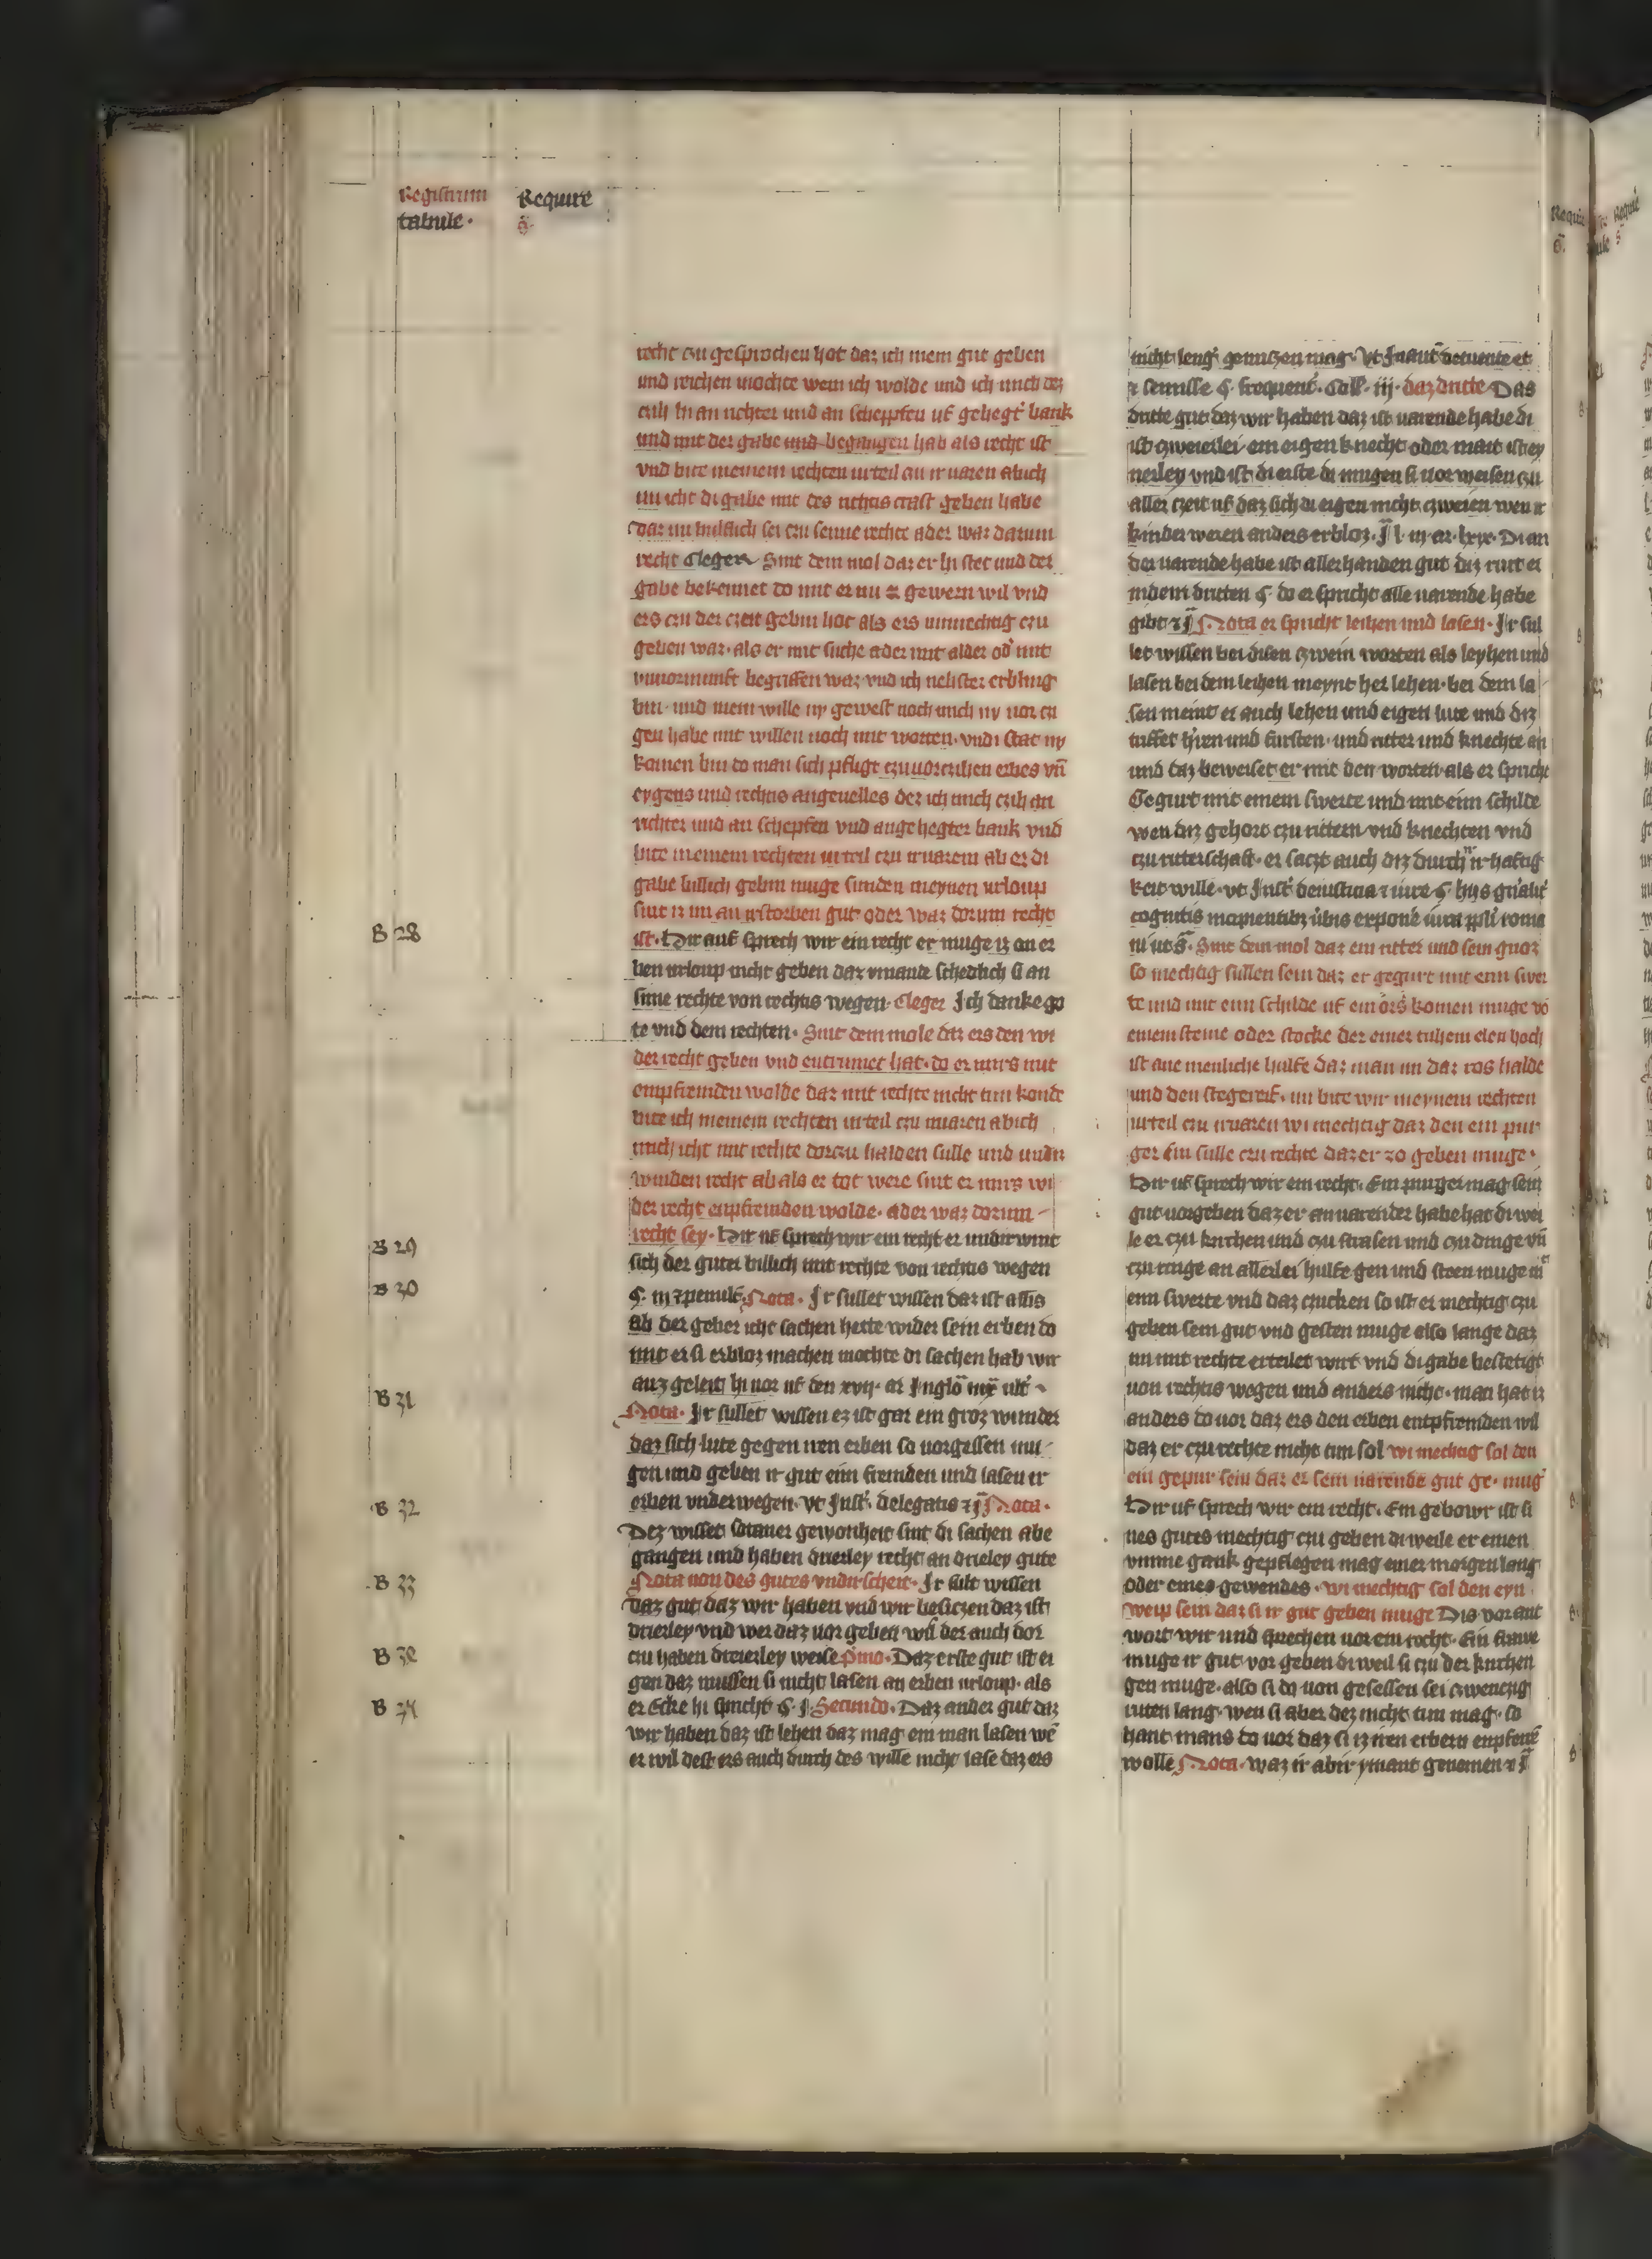 Registrum Require
tabule · G·
recht czu gesprochen hot daz ich mein gut geben
und reichen mochte wem ich wolde und ich mich dez
czih hi an richter und an scheppfen uf gehegt' bank
und mit der gabe und begangen hab als recht ist
vnd bite meinem rechten urteil czu ir uaren ab ich
im icht di gabe mit des richtis craft geben habe
daz im billich sei czu seime rechte ader waz darum
recht Cleger Sint dem mol daz er hi stet und der
gabe bekennet do mit er gewern wil vnd
ers czu der czeit gebin hot als ers unmechtig czu
geben waz· als er mit suche ader mit alder od' mit
vnuornunft begriffen waz vnd ich nehster erbling
bin· und mein wille ny gewest noch mich ny uor cu
gen habe mit willen noch mit worten· vnd i stat ny
komen bin do man sich pfligt czu uorczihen erbes vn̄
eygens und rechtis angeuelles dez ich mich czih an
richter und an schepfen vnd an gehegter bank vnd
bite meinem rechten urteil czu ir uarem ab er di
gabe billich gebin muge sunden meynen urloup
sint iz im an irstorben gut oder waz dorum recht
B 28 ist· Hir auf sprech wir ein recht er muge iz an er
ben urloup nicht geben daz ymande schedlich si an
sime rechte von rechtis wegen· Cleger Ich danke go
te vnd dem rechten· Sint dem mole daz ers den wi
der recht geben vnd entrumet hat· do er mirs mit
empfremden wolde daz mit rechte nicht tun konde
bite ich meinem rechten urteil czu iruaren ab ich
mich icht mit rechte dorczu halden sulle und undir
winden recht ab als er tot were sint er mirs wi
der recht enpfremden wolde· ader waz dorum
B 29 recht sey· Hir uf sprech wir ein recht er undirwint
sich der guter billich mit rechte von rechtis wegen
B 30 Nota· Ir sullet wissen daz ist
ab der geber icht sachen hette wider sein erben do
mit er si erbloz machen mochte di sachen hab wir
auz geleit hi uor uf den xvij· ar
B 31 Nota· Ir sullet wissen ez ist gar ein groz wunder
daz sich lute gegen iren erben so uorgessen mu
gen und geben ir gut eim fremden und lasen ir
B 32 erben vnderwegen· vt Inst'. delegatis Nota·
Dez wisset sotaner gewonheit sint di sachen abe
gangen und haben drierley recht an drieley gute
B 33 Nota uon des gutes vndirscheit· Ir sult wissen
daz gut daz wir haben vnd wir besiczen daz ist
drierley vnd wer daz uor geben wil der auch dor
B 3 czu haben dreierley weise p̄mo· Daz erste gut ist ei
gen daz mussen si nicht lasen an erben urloup· als
B 34 er Ecke hi spricht §· j· Secundo· Daz ander gut daz
wir haben daz ist lehen daz mag ein man lasen wē
er wil dest ers auch durch des wille nicht lase daz ers
nicht leng' genuczen mag· Vt
§· frequent'. Coll'· iij· daz dritte Das
dritte gut daz wir haben daz ist uarende habe di
ist czweierlei· ein eigen knecht oder mait ist ey
nerley vnd ist di erste di mugen si uor weisen czu
aller czeit uf daz sich di eigen nicht czweien wen ir
kinder weren anders erbloz· Di an
der uarende habe ist allerhanden gut daz rurt er
in dem dritten §· do er spricht alle uarende habe
gibt Nota er spricht leihen und lasen· Ir sul
let wissen bei disen czwein worten als leyhen und
lasen bei dem leihen meynt her lehen· bei dem la
sen meint er auch lehen und eigen lute und diz
triffet h'ren und fursten· und ritter und knechte an
und daz beweiset er mit den worten als er spricht
Gegurt mit einem swerte und mit eim schilde
wen diz gehort czu rittern vnd knechten vnd
czu ritterschaft· er saczt auch diz durch ir haftig
keit wille· vt Inst' de iusticia 
cognitis incipientibz
Sint dem mol daz ein ritter und sein gnoz
so mechtig sullen sein daz er gegurt mit eim swer
te und mit eim schilde uf ein ors komen muge vō
einem steine oder stocke der einer tuhem elen hoch
ist ane menliche hulfe daz man im daz ros halde
und den stegereif· nu bite wir meynem rechten
urteil czu iruaren wi mechtig daz den ein pur
ger sin sulle czu rechte daz er zo geben muge·
Hir uf sprech wir ein recht· Ein purger mag sein
gut uorgeben daz er an uarender habe hat di wei
le er czu kirchen und czu strasen und czu dinge vn̄
czu ringe an allerlei hulfe gen und steen muge mit
eim swerte vnd daz czucken so ist er mechtig czu
geben sein gut vnd gesten muge also lange daz
im mit rechte erteilet wirt vnd di gabe bestetigt
uon rechtis wegen und anders nicht· man hat iz
anders do uor daz ers den erben entpfremden wil
daz er czu rechte nicht tun sol wi mechtig sol den
ein gepur sein daz er sein uarende gut ge· mug'
Hir uf sprech wir ein recht· Ein gebowr ist si
nes gutes mechtig czu geben di weile er einen
vmme gank gepflegen mag einer morgen lang
oder eines gewendes· wi mechtig sol den eyn
weip sein daz si ir gut geben muge Dis vor ant
wort wir und sprechen uor ein recht· Ein frawe
muge ir gut vor geben di weil si czu der kirchen
gen muge· also si do uon gesessen sei czwenczig
ruten lang· wen si aber dez nicht tun mag· so
hant mans do uor daz si iz iren erbern enpfrēt
wolle Nota· waz ir abir ymant genomen